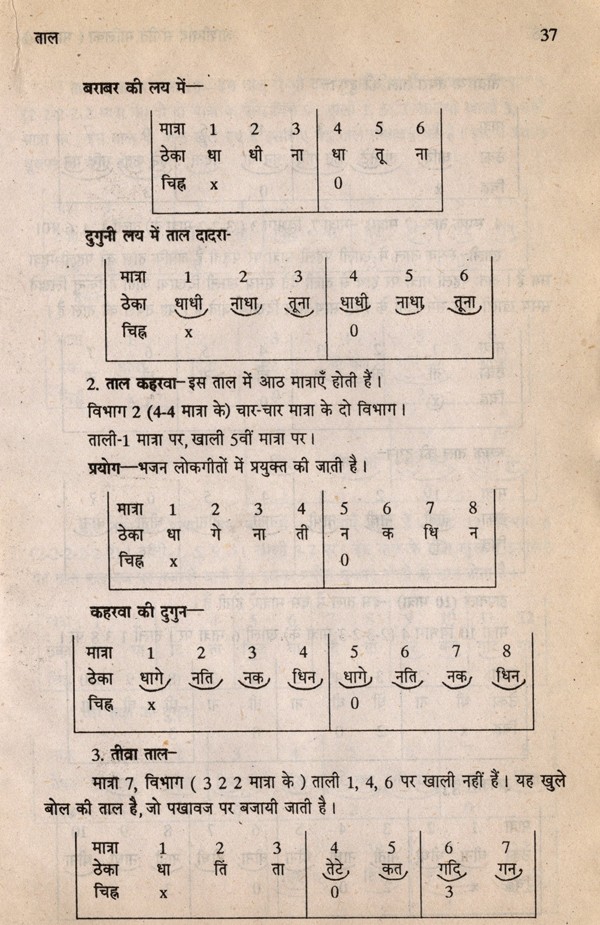 ताल 37
बराबर की लय में—
मात्रा 1 2 3 4 5 6
ठेका धा धी ना धा तू ना
चिह्न x 0
दुगुनी लय में ताल दादरा-
मात्रा 1 2 3 4 5 6
ठेका धाधी नाधा तूना धाधी नाधा तूना
चिह्न x 0
2. ताल कहरवा—इस ताल में आठ मात्राएँ होती हैं।
विभाग 2 (4-4 मात्रा के) चार-चार मात्रा के दो विभाग।
ताली-1 मात्रा पर, खाली 5वीं मात्रा पर।
प्रयोग—भजन लोकगीतों में प्रयुक्त की जाती है।
मात्रा 1 2 3 4 5 6 7 8
ठेका धा गे ना ती न क धि न
चिह्न x 0
कहरवा की दुगुन—
मात्रा 1 2 3 4 5 6 7 8
ठेका धागे नति नक धिन धागे नति नक धिन
चिह्न x 0
3. तीव्रा ताल—
मात्रा 7, विभाग ( 3 2 2 मात्रा के ) ताली 1, 4, 6 पर खाली नहीं हैं। यह खुले
बोल की ताल है, जो पखावज पर बजायी जाती है।
मात्रा 1 2 3 4 5 6 7
ठेका धा तिं ता तेटे कत गदि गन
चिह्न x 0 3